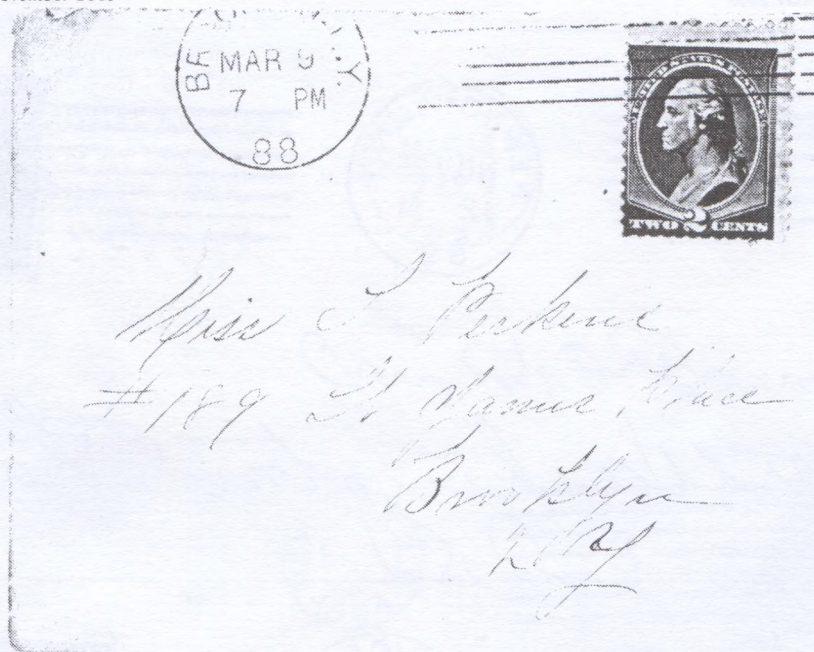 MAR 9
7 PM
88
UNITED STATES POSTAGE
TWO 2 CENTS
Miss L Perkins
#189 St James Place
Brooklyn
N.Y